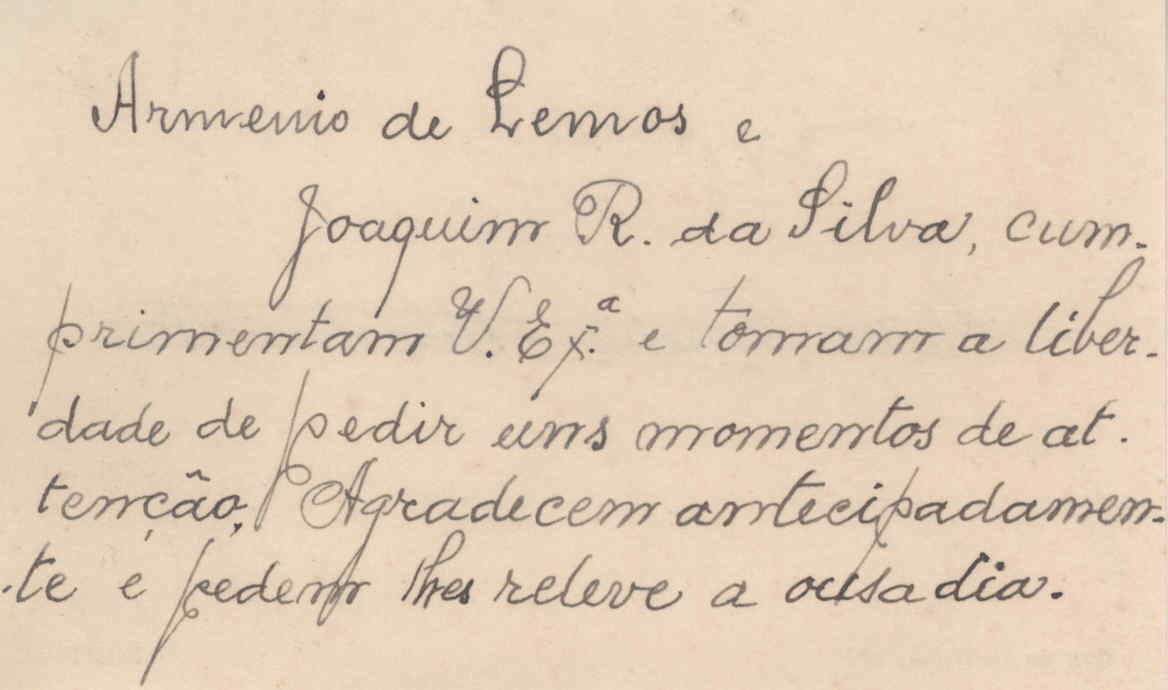 Armenio de Lemos e
Joaquim R. da Silva, cum-
primentam V. Ex.ª e tomam a liber-
dade de pedir uns momentos de at-
tenção. Agradecem antecipadamen-
-te e pedem lhes releve a ousadia.